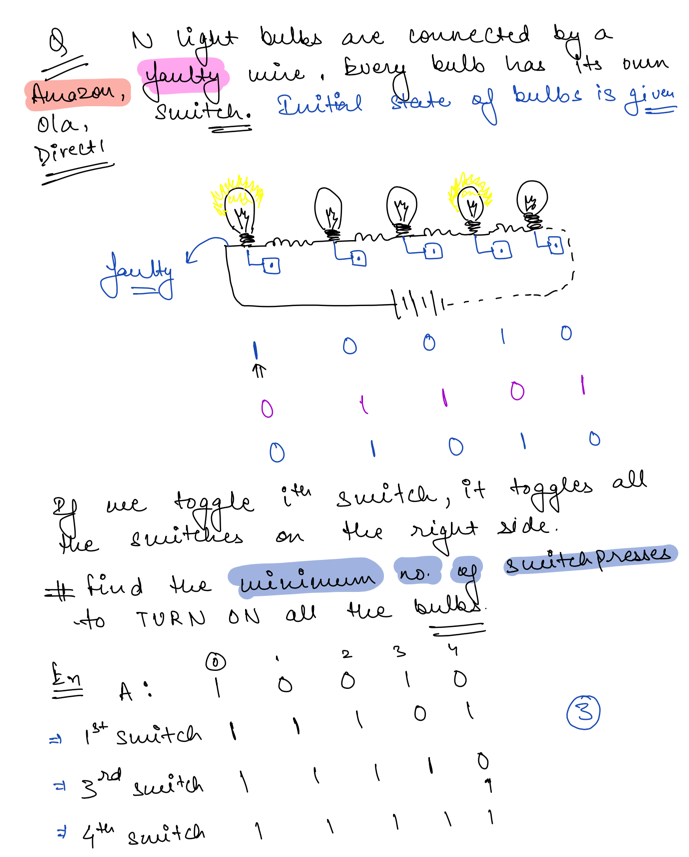 Q N light bulbs are connected by a
Amazon, faulty wire. Every bulb has its own
Ola, switch. Initial state of bulbs is given
Directi
faulty
1 0 0 1 0
0 1 1 0 1
0 1 0 1 0
If we toggle ith switch, it toggles all
the switches on the right side.
# find the minimum no. of switch presses
to TURN ON all the bulbs.
0 1 2 3 4
Ex A: 1 0 0 1 0
⇒ 1st switch 1 1 1 0 1 3
⇒ 3rd switch 1 1 1 1 0
⇒ 4th switch 1 1 1 1 1